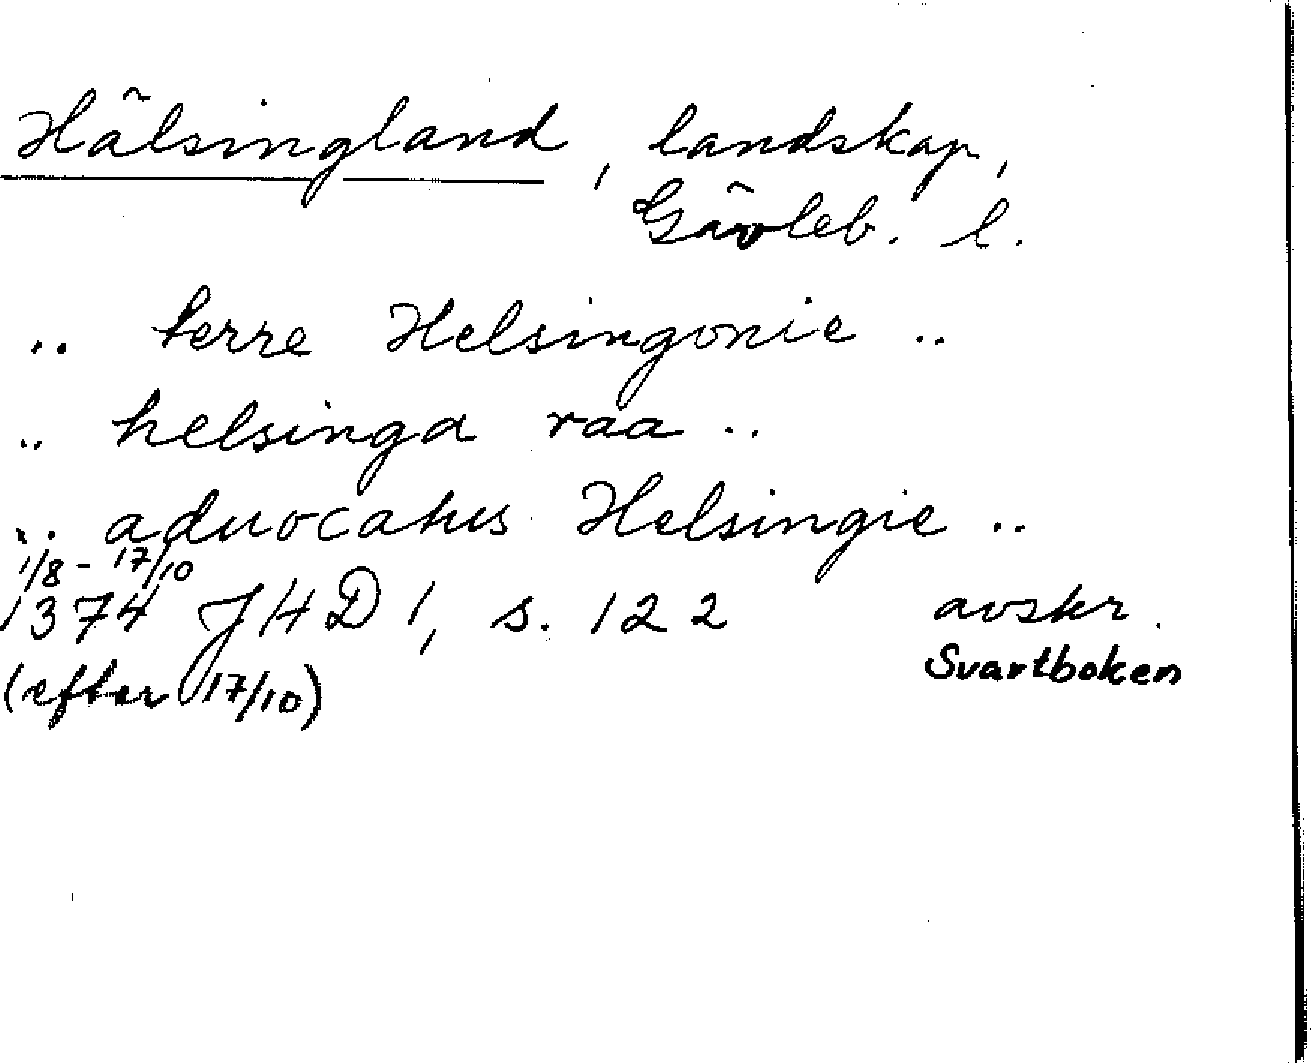 Hälsingland, landskap,
Gävleb. l.
.. terre Helsingonie ..
.. helsinga raa ..
.. aduocatus Helsingie ..
1/8 - 17/10
1374 JHD 1, s. 122 avskr.
(efter 17/10) Svartboken